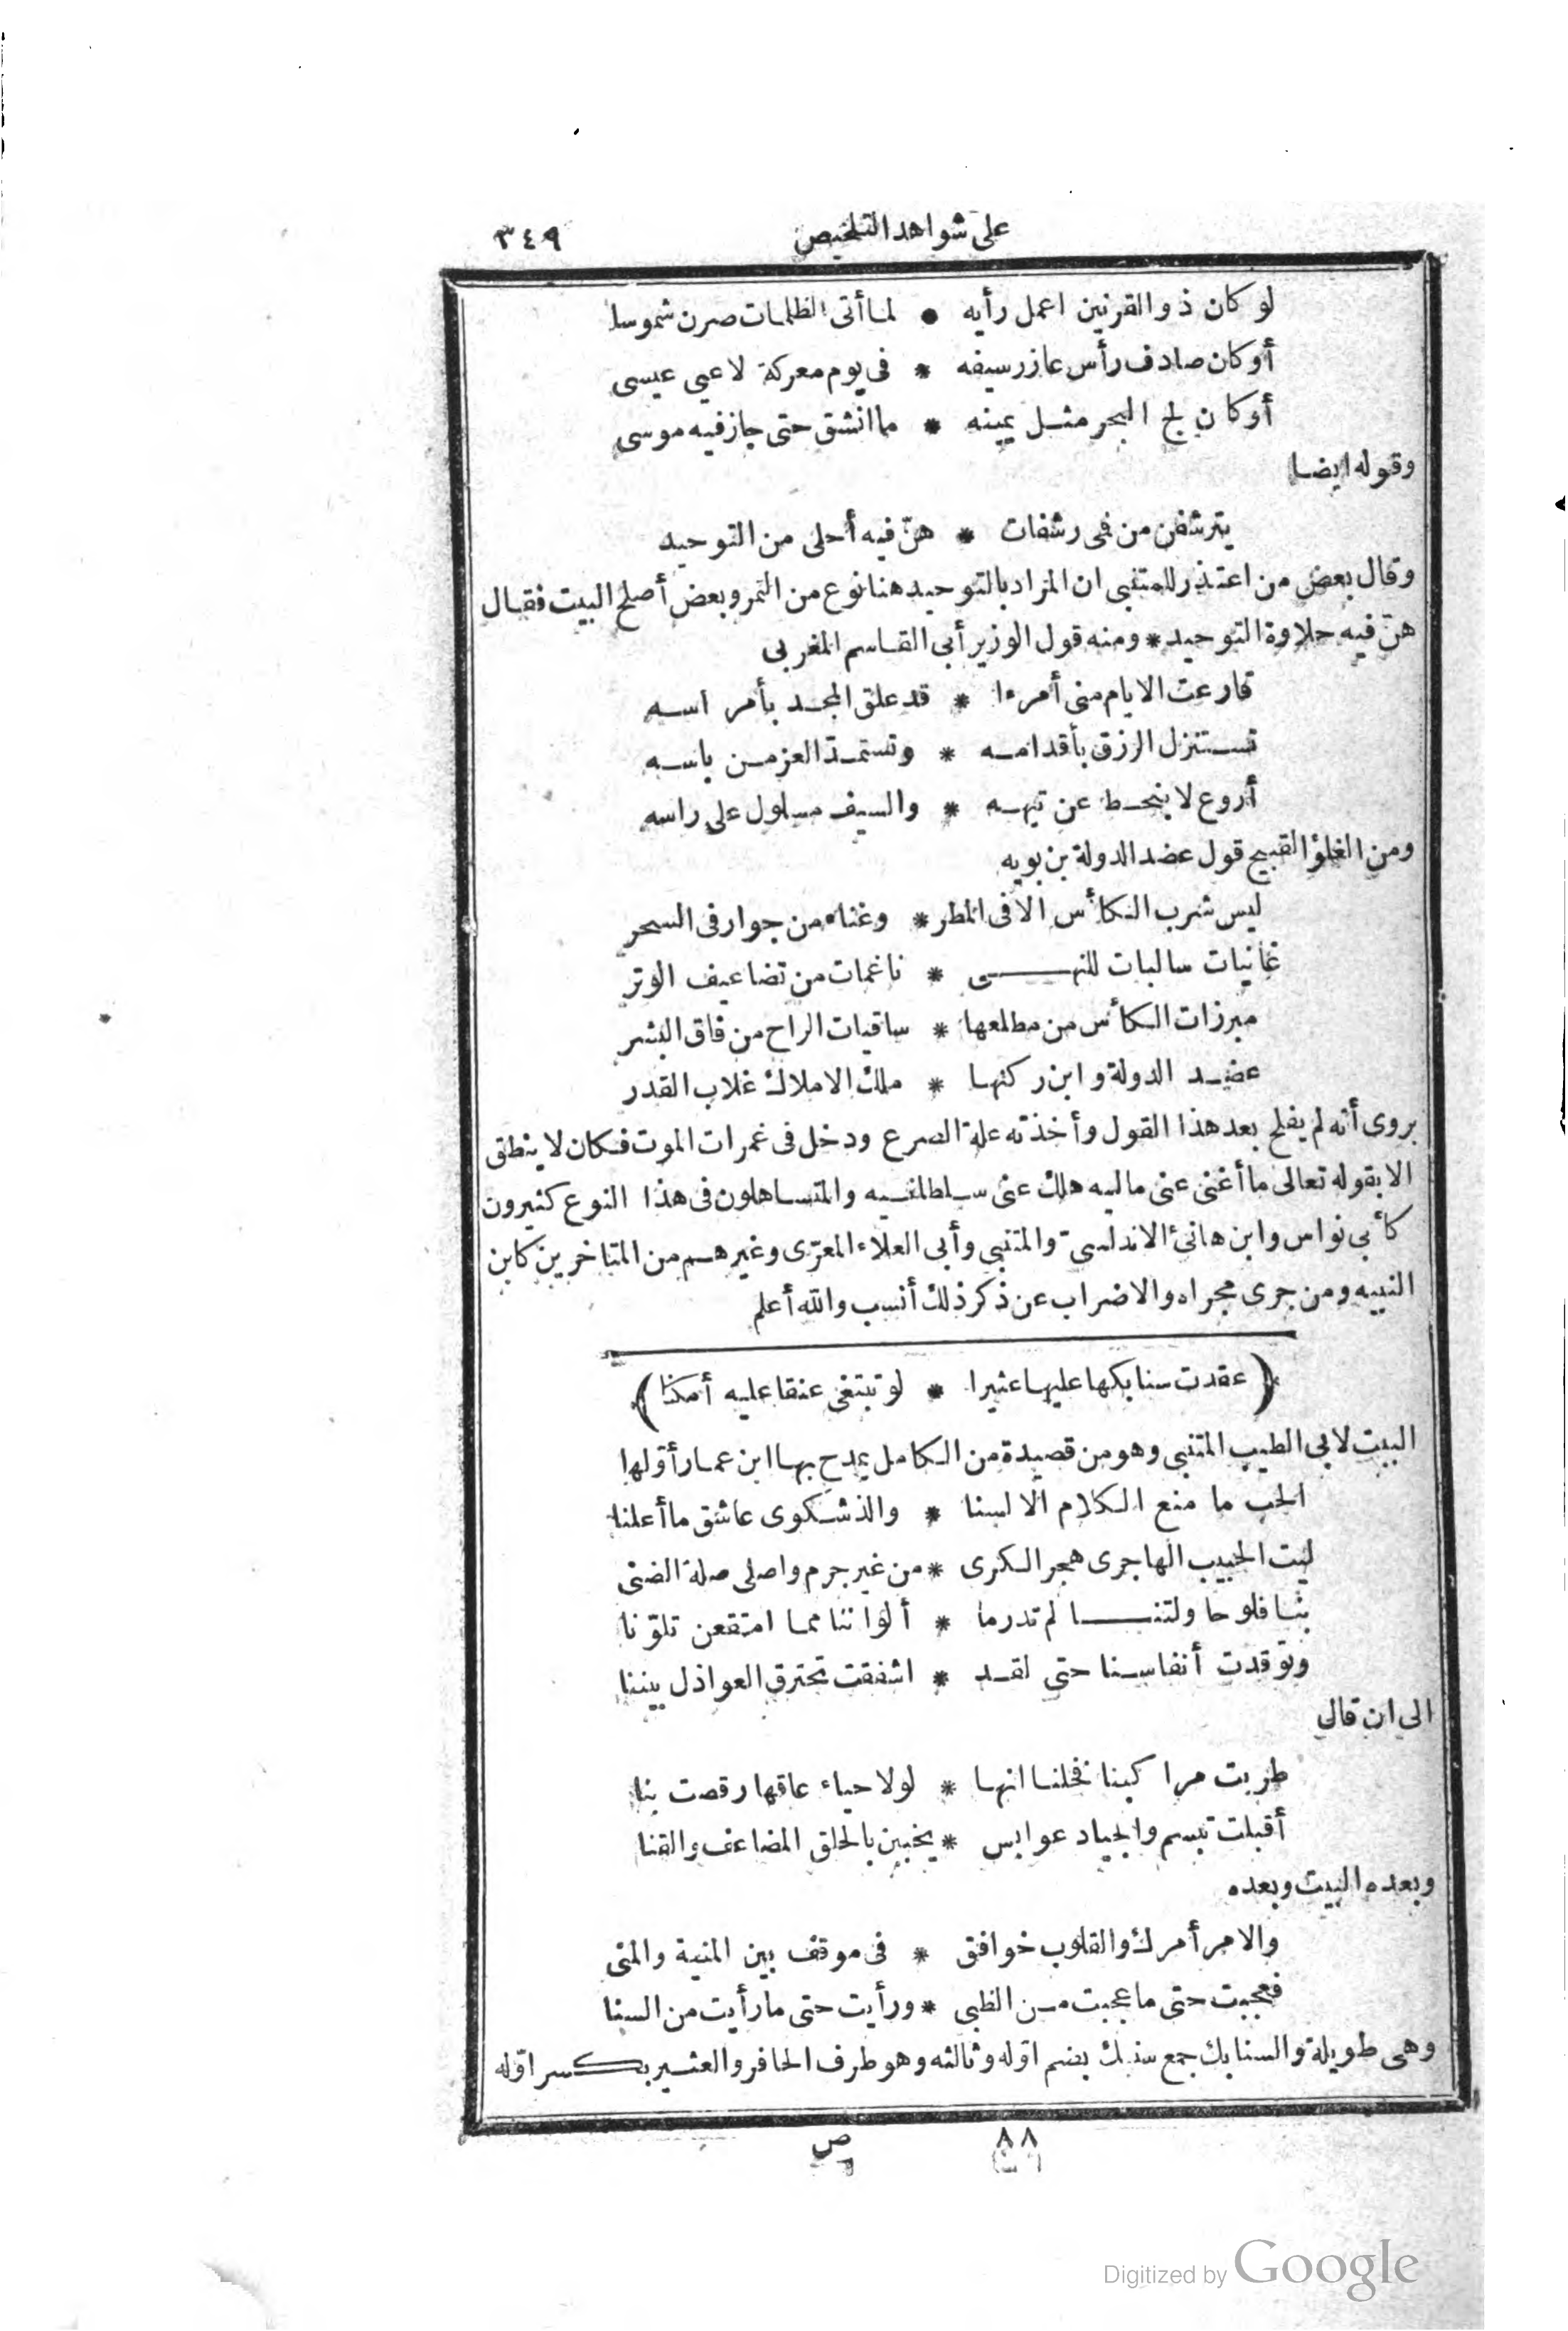 على شواهد التلخيص ٣٤٩
لو كان ذو القرنين اعمل رأيه * لما أتى الظلمات صرن شموسا
أو كان صادف رأس عازر سيفه * فى يوم معركة لاعيى عيسى
أو كان لج البحر مثل يمينه * ما انشق حتى جاز فيه موسى
وقوله ايضا
يترشفن من فمى رشفات * هنّ فيه أحلى من التوحيد
وقال بعض من اعتذر للمتنبى ان المراد بالتوحيد هنا نوع من التمر وبعض أصلح البيت فقال
هنّ فيه حلاوة التوحيد * ومنه قول الوزير أبى القاسم المغربى
قارعت الايام منى أمرءا * قد علق المجد بأمراسه
تستنزل الرزق بأقدامه * وتستمدّ العز من باسه
أروع لا ينحط عن تيهه * والسيف مسلول على راسه
ومن الغلوّ القبيح قول عضد الدولة بن بويه
ليس شرب الكأس الا فى المطر * وغناء من جوار فى السحر
غانيات سالبات للنهى * ناغمات من تضاعيف الوتر
مبرزات الكأس من مطلعها * ساقيات الراح من فاق البشر
عضد الدولة وابن ركنها * ملك الاملاك غلاب القدر
يروى أنه لم يفلح بعد هذا القول وأخذته علة الصرع ودخل فى غمرات الموت فكان لا ينطق
الا بقوله تعالى ما أغنى عنى ماليه هلك عنى سلطانيه والمتساهلون فى هذا النوع كثيرون
كأبى نواس وابن هانئ الاندلسىّ والمتنبى وأبى العلاء المعرّى وغيرهم من المتاخرين كابن
النبيه ومن جرى مجراه والاضراب عن ذكر ذلك أنسب والله أعلم
(عقدت سنابكها عليها عثيرا * لو تبتغى عنقا عليه أمكنا)
البيت لابى الطيب المتنبى وهو من قصيدة من الكامل يمدح بها ابن عمار أوّلها
الحب ما منع الكلام الالسنا * والذ شكوى عاشق ما أعلنا
ليت الحبيب الهاجرى هجر الكرى * من غير جرم واصلى صلة الضنى
بنا فلو حاولتنا لم تدر ما * ألواننا مما امتقعن تلوّنا
وتوقدت أنفاسنا حتى لقد * اشفقت تحترق العواذل بيننا
الى ان قال
طربت مراكبنا فخلنا انها * لولا حياء عاقها رقصت بنا
أقبلت تبسم والجياد عوابس * يخببن بالحلق المضاعف والقنا
وبعده البيت وبعده
والامر أمرك والقلوب خوافق * فى موقف بين المنية والمنى
فعجبت حتى ما عجبت من الظبى * ورأيت حتى ما رأيت من السنا
وهى طويلة والسنابك جمع سنبك بضم اوّله وثالثه وهو طرف الحافر والعثير بكسر اوّله
٨٨ ص
Digitized by Google